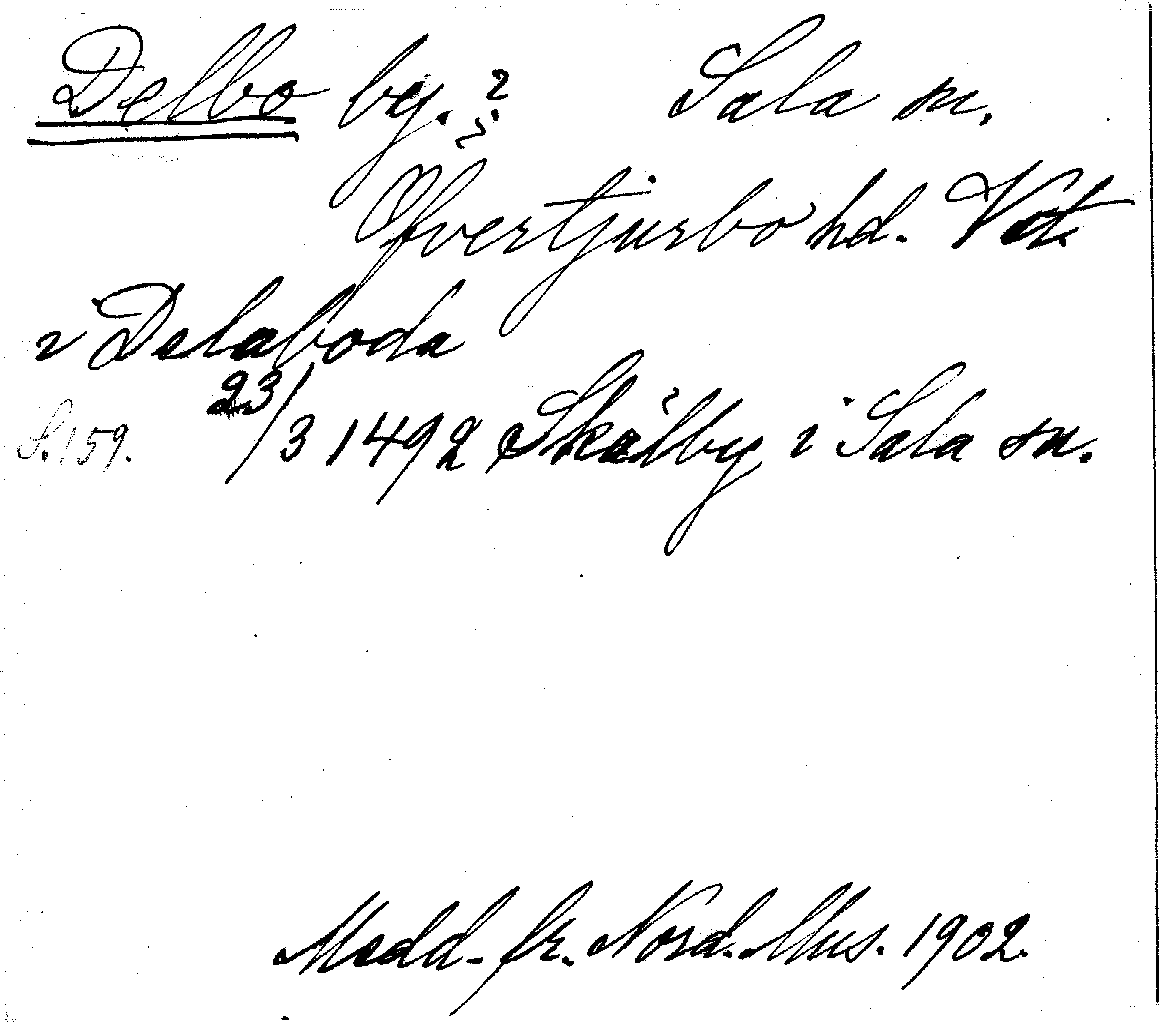 Delbo by. ? Sala sn.
Öfvertjurbo hd. Vstm.
i Delaboda
S. 159. 23/3 1492 Skälby i Sala sn.
Medd. fr. Nord. Mus. 1902.